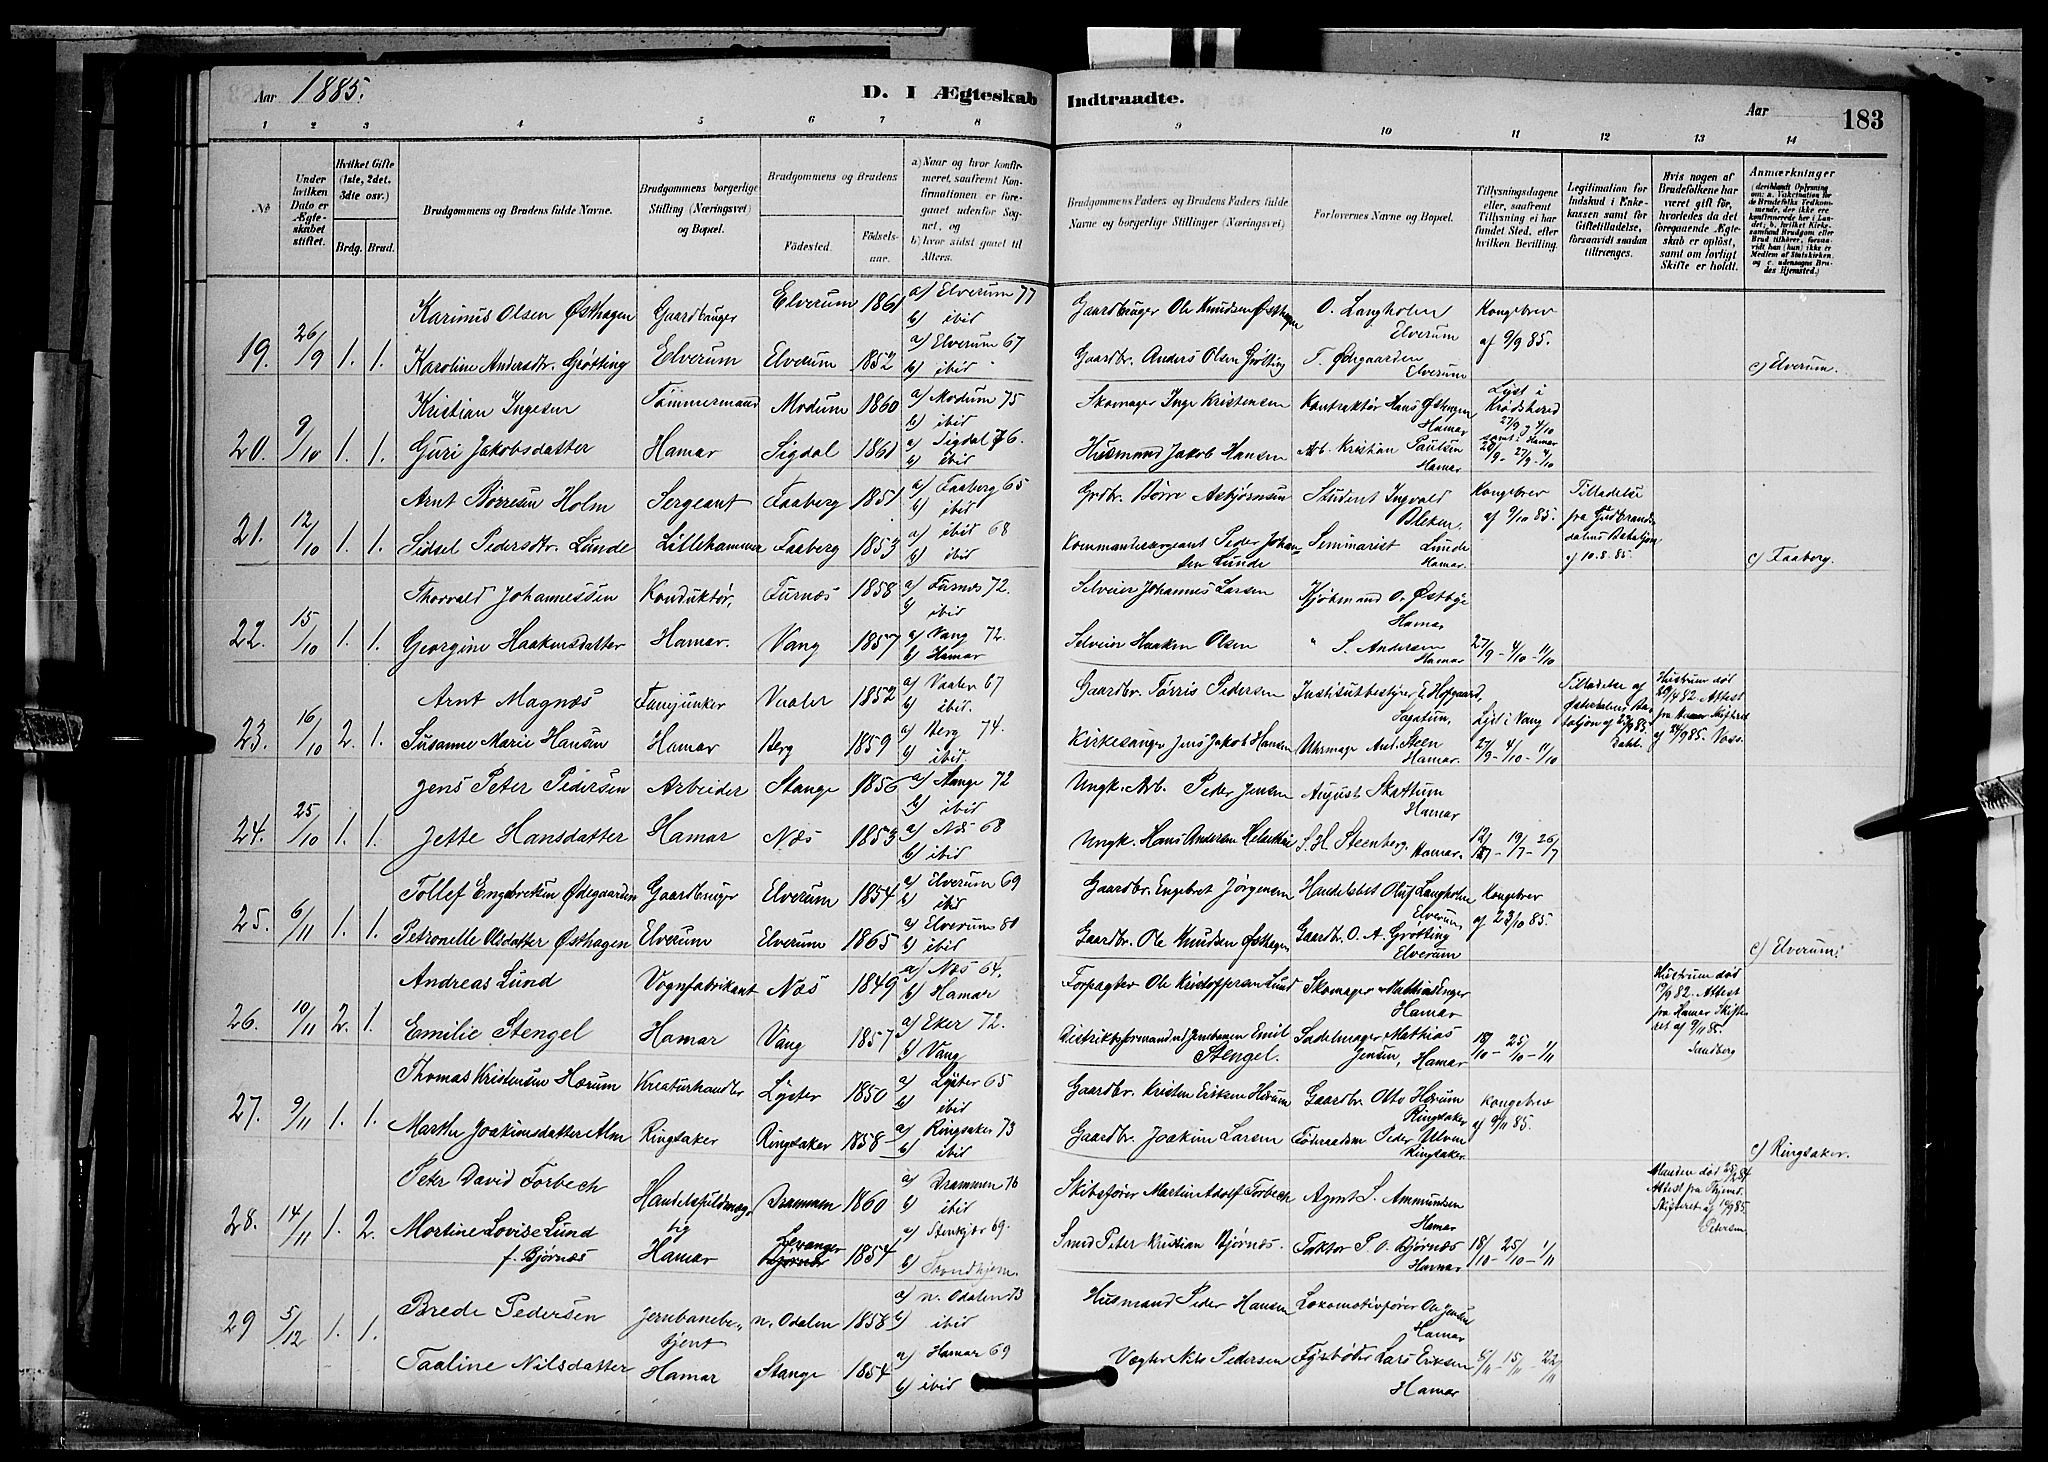 Aar 1885.
D. I Ægteskab Indtraadte.
Aar
183
1 2 3 4 5 6 7 8 9 10 11 12 13 14
No
Under hvilken Dato er Ægteskabet stiftet.
Hvilket Gifte (1ste, 2det, 3dte osv.)
Brdg. Brud.
Brudgommens og Brudens fulde Navne.
Brudgommens borgerlige Stilling (Næringsvei) og Bopæl.
Brudgommens og Brudens
Fødested. Fødselsaar.
a) Naar og hvor konfirmeret, saafremt Konfirmationen er foregaaet udenfor Sognet, og
b) hvor sidst gaaet til Alters.
Brudgommens Faders og Brudens Faders fulde Navne og borgerlige Stillinger (Næringsvei)
Forlovernes Navne og Bopæl.
Tillysningsdagene eller, saafremt Tillysning ei har fundet Sted, efter hvilken Bevilling.
Legitimation for Indskud i Enkekassen samt for Giftetilladelse, forsaavidt saadan tiltrænges.
Hvis nogen af Brudefolkene har været gift før, hvorledes da det foregaaende Ægteskab er opløst, samt om lovligt Skifte er holdt.
Anmærkninger
(deriblandt Oplysning om: a. Vaksination for de Brudefolks Vedkommende, der ikke ere konfirmerede her i Landet; b. hvilket Kirkesamfund Brudgom eller Brud tilhører, forsaavidt han (hun) ikke er Medlem af Statskirken, og c. udensogns Brudes Hjemsted.)
19. 26/9 1. 1. Karinus Olsen Østhagen Gaardbruger Elverum 1861 a) Elverum 77 b) ibid Gaardbruger Ole Knudsen Østhagen O. Langholen Elverum Kongebrev af 9/9 85.
Karoline Andersdtr. Grøtting Elverum Elverum 1852 a) Elverum 67 b) ibid Gaardbr. Anders Olsen Grøtting T. Ødegaarden Elverum c) Elverum.
20. 9/10 1. 1. Kristian Ingesen Tømmermand Modum 1860 a) Modum 75 b) ibid Skomager Inge Kristensen Kontraktør Hans Østhagen Hamar Lyst i Krødsherred 27/9 4/10
Guri Jakobsdatter Hamar Sigdal 1861 a) Sigdal 76. b) ibid Husmand Jakob Hansen Arb. Kristian Paulsen Hamar samt i Hamar 20/9 - 27/9 - 4/10
21. 12/10 1. 1. Arnt Børresen Holm Sergeant Faaberg 1851 a) Faaberg 65 b) ibid Grdbr. Børre Asbjørnsen Student Ingvald Bleken. Kongebrev af 9/10 85. Tilladelse fra Gudbrandsdalens Bataljon af 10.8.85.
Sidsel Pedersdtr. Lunde Lillehammer Faaberg 1853 a) ibid 68 b) ibid Kommandersergeant Peder Johansen Lunde Seminarist Lunde Hamar. c) Faaberg.
22. 15/10 1. 1. Thorvald Johannessen Konduktør, Furnæs 1858 a) Furnæs 72. b) ibid Selveier Johannes Larsen Kjøbmand O. Østbye Hamar
Georgine Haakensdatter Hamar. Vang 1857 a) Vang 72. b) Hamar Selveier Haaken Olsen " S. Andersen Hamar 27/9 - 4/10 - 11/10
23. 16/10 2. 1. Arnt Magnæs Fanejunker Vaaler 1852 a) Vaaler 67 b) ibid. Gaardbr. Torris Pedersen Institutbestyrer E. Hofgaard, Sagatun, Tilladelse af Østerdalens Bataljon af 27/9 85. Dahl. Hustruen død 29/4 82. Attest fra Hamar Skifteret af 24/9 85.
Susanne Marie Hansen Hamar Berg 1859 a) Berg 74. b) ibid. Kirkesanger Jens Jakob Hansen Uhrmager Ant. Steen Hamar. Lyst i Vang 27/9 - 4/10 - 11/10
24. 25/10 1. 1. Jens Peter Pedersen Arbeider Stange 1856 a) Stange 72 b) ibid Ungk. Arb. Peder Jensen August Skattum Hamar
Jette Hansdatter Hamar Næs 1853 a) Næs 68 b) ibid Ungk. Hans Andersen S. H. Steenberg. Hamar. 12/7 - 19/7 - 26/7
25. 6/11 1. 1. Tollef Engebretsen Ødegaarden Gaardbruger Elverum 1854 a) Elverum 69 b) ibid Gaardbr. Engebret Jørgensen Handelsbet. Oluf Langholen Elverum, Kongebrev af 23/10 85.
Petronelle Olsdatter Østhagen Elverum Elverum 1865 a) Elverum 80 b) ibid Gaardbr. Ole Knudsen Østhagen Gaardbr. O. A. Grøtting Elverum c) Elverum.
26. 10/11 2. 1. Andreas Lund Vognfabrikant Næs 1849 a) Næs 64. b) Hamar Forpagter Ole Kristoffersen Lund Skomager Mathias Enger Hamar Hustruen død 17/9 82. Attest fra Hamar Skifteret af 9/11 85 Sandberg
Emilie Stengel Hamar Vang 1857 a) Eker 72. b) Vang Distriktsformand ved Jernbanen Emil Stengel. Sadelmager Mathias Jensen, Hamar 18/10 - 25/10 - 1/11
27. 9/11 1. 1. Thomas Kristensen Hærum Kreaturhandler Lyster 1850 a) Lyster 65 b) ibid Gaardbr. Kristen Eriksen Hærum Gaardbr. Otto Hærum Ringsaker Kongebrev af 9/11 85.
Marthe Joakimsdatter Alm Ringsaker Ringsaker 1858 a) Ringsaker 73 b) ibid Gaardbr. Joakim Larsen Peder Ulven Ringsaker. c) Ringsaker.
28. 14/11 1. 2. Peter David Forbech Handelsfuldmægtig Drammen 1860 a) Drammen 76 b) ibid Skibsfører Martin Adolf Forbech Agent S. Ammundsen Hamar Manden død 25/2 84 Attest fra Thjems Skifteret af 14/9 85 Petersen
Martine Lovise Lund f. Bjørnæs Hamar Levanger 1854 a) Stenkjær 69. b) Trondhjem. Smed Peter Kristian Bjørnæs. Faktor P. O. Bjørnæs Hamar 18/10 - 25/10 - 1/11
29 5/12 1. 1. Brede Pedersen Jernbanebetjent n. Odalen 1858 a) n. Odalen 73 b) ibid Husmand Peder Hansen Lokomotivfører Ole Jensen Hamar
Taaline Nilsdatter Hamar Stange 1854 a) Hamar 69 b) ibid Vægter Nils Pedersen Fyrbøder Lars Eriksen Hamar 8/11 - 15/11 - 22/11